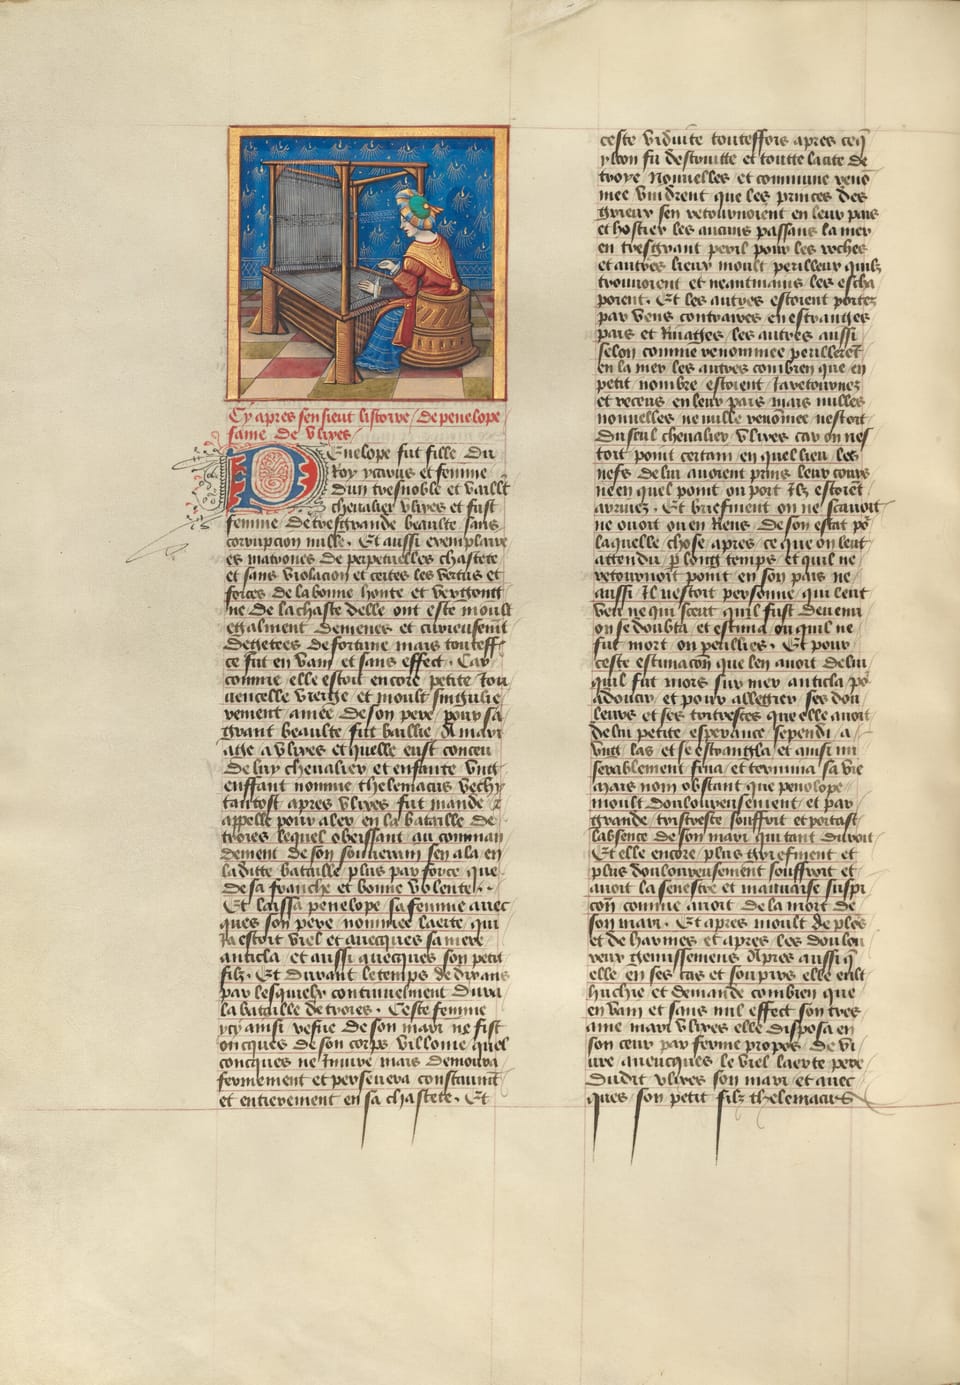 Cy apres sensieut listoire de penelope
fame de Vlixes
Penelope fut fille du
Roy ycarus et femme
dun tresnoble et vaillt
chevalier vlixes et fust
femme de tresgrande beaulte sans
corrupcion nulle. Et aussi exemplaire
es matrones de perpetuelles chastete
et sans violacion et certes les vertus et
forces de la bonne honte et vergong
ne de la chaste delle ont este moult
egalment demenes et curieusemt
degetees de fortune mais touteff
ce fut en vain et sans effect. Car
comme elle estoit encore petite Jou
uencelle vierge et moult singulie
rement amee de son pere pour sa
grant beaulte fut baillie A mari
age a vlixes et quelle eust conceu
de luy chevalier et enfante vng
enffant nomme thelemacus vechy
tantost apres vlixes fut mande &
appelle pour aler en la bataille de
troies lequel obeissant au comman
dement de son souverain sen ala en
laditte bataille plus par force que
de sa franche et bonne volente.
Et laissa penelope sa femme avec
ques son pere nommee laerte qui
Ja estoit viel et avecques sa mere
anticla et aussi avecques son petit
filz. Et durant le temps de dix ans
par lesquelx continuelment dura
la bataille de troies. Ceste femme
ycy ainsi vefue de son mari ne fist
oncques de son corps villonie quel
concques ne Iniure mais demoura
fermement et persevera constaumt
et entierement en sa chastete. Et
ceste viduite touteffois apres ceq̄
ylion fu destruitte et toutte la cite de
troye Nouvelles et commune reno
mee vindrent que les princes des
grieux sen retournoient en leur pais
et hostier les aucuns passans la mer
en tresgrant peril pour les roches
et autres lieux moult perilleux quilz
trouvoient et neantmains les escha
poient. Et les autres estoient portez
par vens contraires en estranges
pais et Rivages les autres aussi
selon comme renommee perillerēt
en la mer les autres combien que en
petit nombre estoient Ja retournez
et receus en leur pais mais nulles
nouvelles ne nulle renōmee nestoit
du seul chevalier vlixes car on nes
toit point certain en quel lieu les
nefs de lui avoient prins leur cours
ne en quel point ou port Ilz estoiēt
arrivez. Et briefment on ne scavoit
ne ouoit on en Riens de son estat pō
laquelle chose apres ce que on leut
attendu p long temps et quil ne
retournoit point en son pais ne
aussi Il nestoit personne qui leut
veu ne qui sceut quil fust devenu
on se doubta et estima ou quil ne
fut mort ou perillies. Et pour
ceste estimacōn que len avoit de lui
quil fut mors sur mer anticla pō
adoucir et pour allegier ses dou
leurs et ses tristresses que elle avoit
de lui petite esperance se pendi a
vng las et se estrangla et ainsi mi
serablement fina et termina sa vie
Mais nom obstant que penolope
moult doulourensement et par
grande tristreste souffrit et portast
labsence de son mari qui tant duroit
Et elle encore plus griefment et
plus doulourensement souffroit et
avoit la senestre et mauvaise suspi
cōn comme avoit de la mort de
son mari. Et apres moult de ples
et de larmes et apres les doulou
reux gemissemens Apres aussi q̄
elle en ses cris et souspirs elle eult
huchie et demande combien que
en vain et sans nul effect son tres
ame mari vlixes elle disposa en
son ceur par ferme propos de vi
ure avencques le viel laerte pere
dudit vlixes son mari et avec
ques son petit filz thelemacus